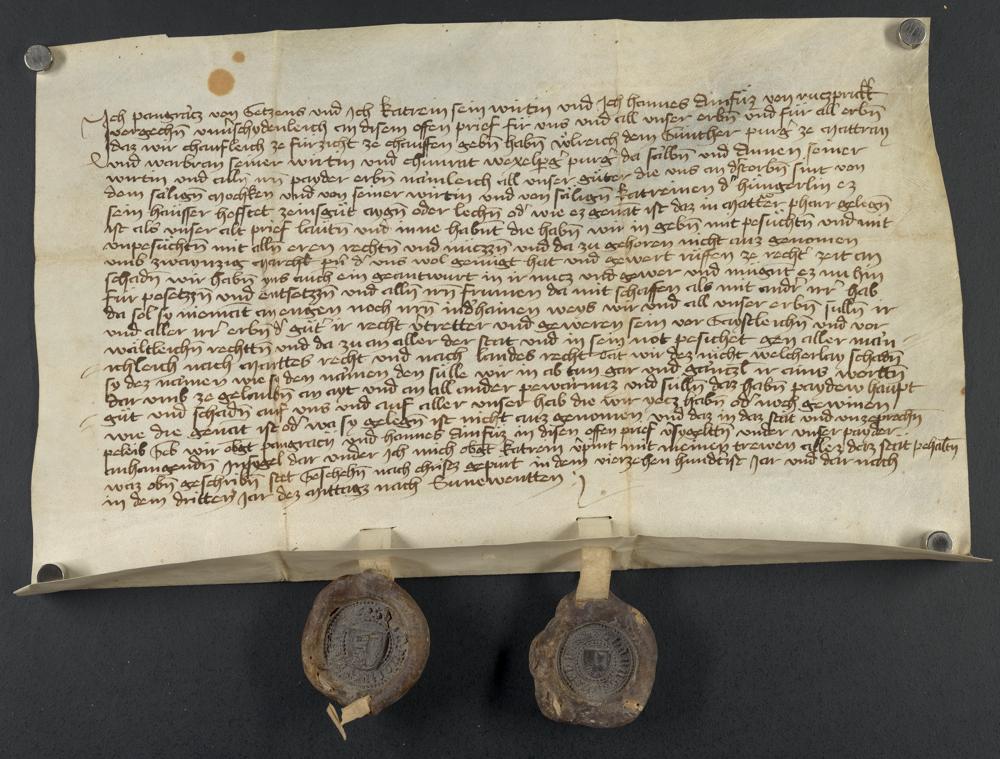 Ich Pangräcz von Setzens und Ich Katrein sein wirtin und Ich Hannes Ainfür von
vergechen unverschydenleich an disem offen prief für uns und all unser erbn und für all erbn
daz wir chaufleich ze fürzicht ze chauffen gebn habn Ulreich dem Günther purger ze Mattray
und Warbran seiner wirtin und Chunrat purger da sälbn und Annen seiner
wirtin und alln irn payder erbn nämleich all unser güter die uns an destorbn sint von
dem säligen und von seiner wirtin und von säligen Katreinen der Hüngerlin ez
sein häuser hofstet zenisgüt aygen oder lechen oder wie ez genant ist daz in Matrer pharr gelegen
ist als unser alt prief lautn und inne habnt die habn wir in gebn mit pesüchten und mit
unpesüchten mit alln eren rechten und nüczzn und da zu gehoren nicht auz genomen
umb zwainzig March perner der uns wol genügt hat und gewert rüffen ze rechter zeit an
schaden wir habn yns auch ein geantwurt in ir nucz und gewer und mügnt ez nu hin
für pesetzzn und entsetzzn und alln irn frumen da mit schaffen als mit andrer irer hab
da sol sy niemant an engen noch irren in dhainen weys wir und all unser erbn sulln ir
und aller irer erbn der güter ir recht vertretter und geweren sein vor Gaystleichen und vor
wältleichen rechten und da zu an aller der stat und in sein not peschiet gen aller män
nichleich nach Marttes recht und nach landes recht Tät wir dez nicht welcherlay schaden
sy dez nämen wie si den nämen den sülle wir in ab tun gar und gäntzl ir ains wortten
dar umb ze gelaubn an ayt und an all ander pewärnuz und sulln daz habn paydew haupt
güt und schaden auf uns und auf aller unser hab die wir yecz habn oder noch gewinen
wie die genant ist oder wa sy gelegen ist nicht auz genomen und daz in daz stät und unzeprochen
peleib Geb wir obgenant Pangräcz und Hannes Ainfür in disen offen prief versygelten under unser payder
anhangenden Insygel dar under Ich mich obgenant Katrein verpint mit meinen trewen allez daz stät pehalten
waz oben geschribn stet Geschehen nach Christz gepurt in dem vierzehen hundtist Jar und dar nach
in dem dritten Jar dez Mittags nach Sunewentten